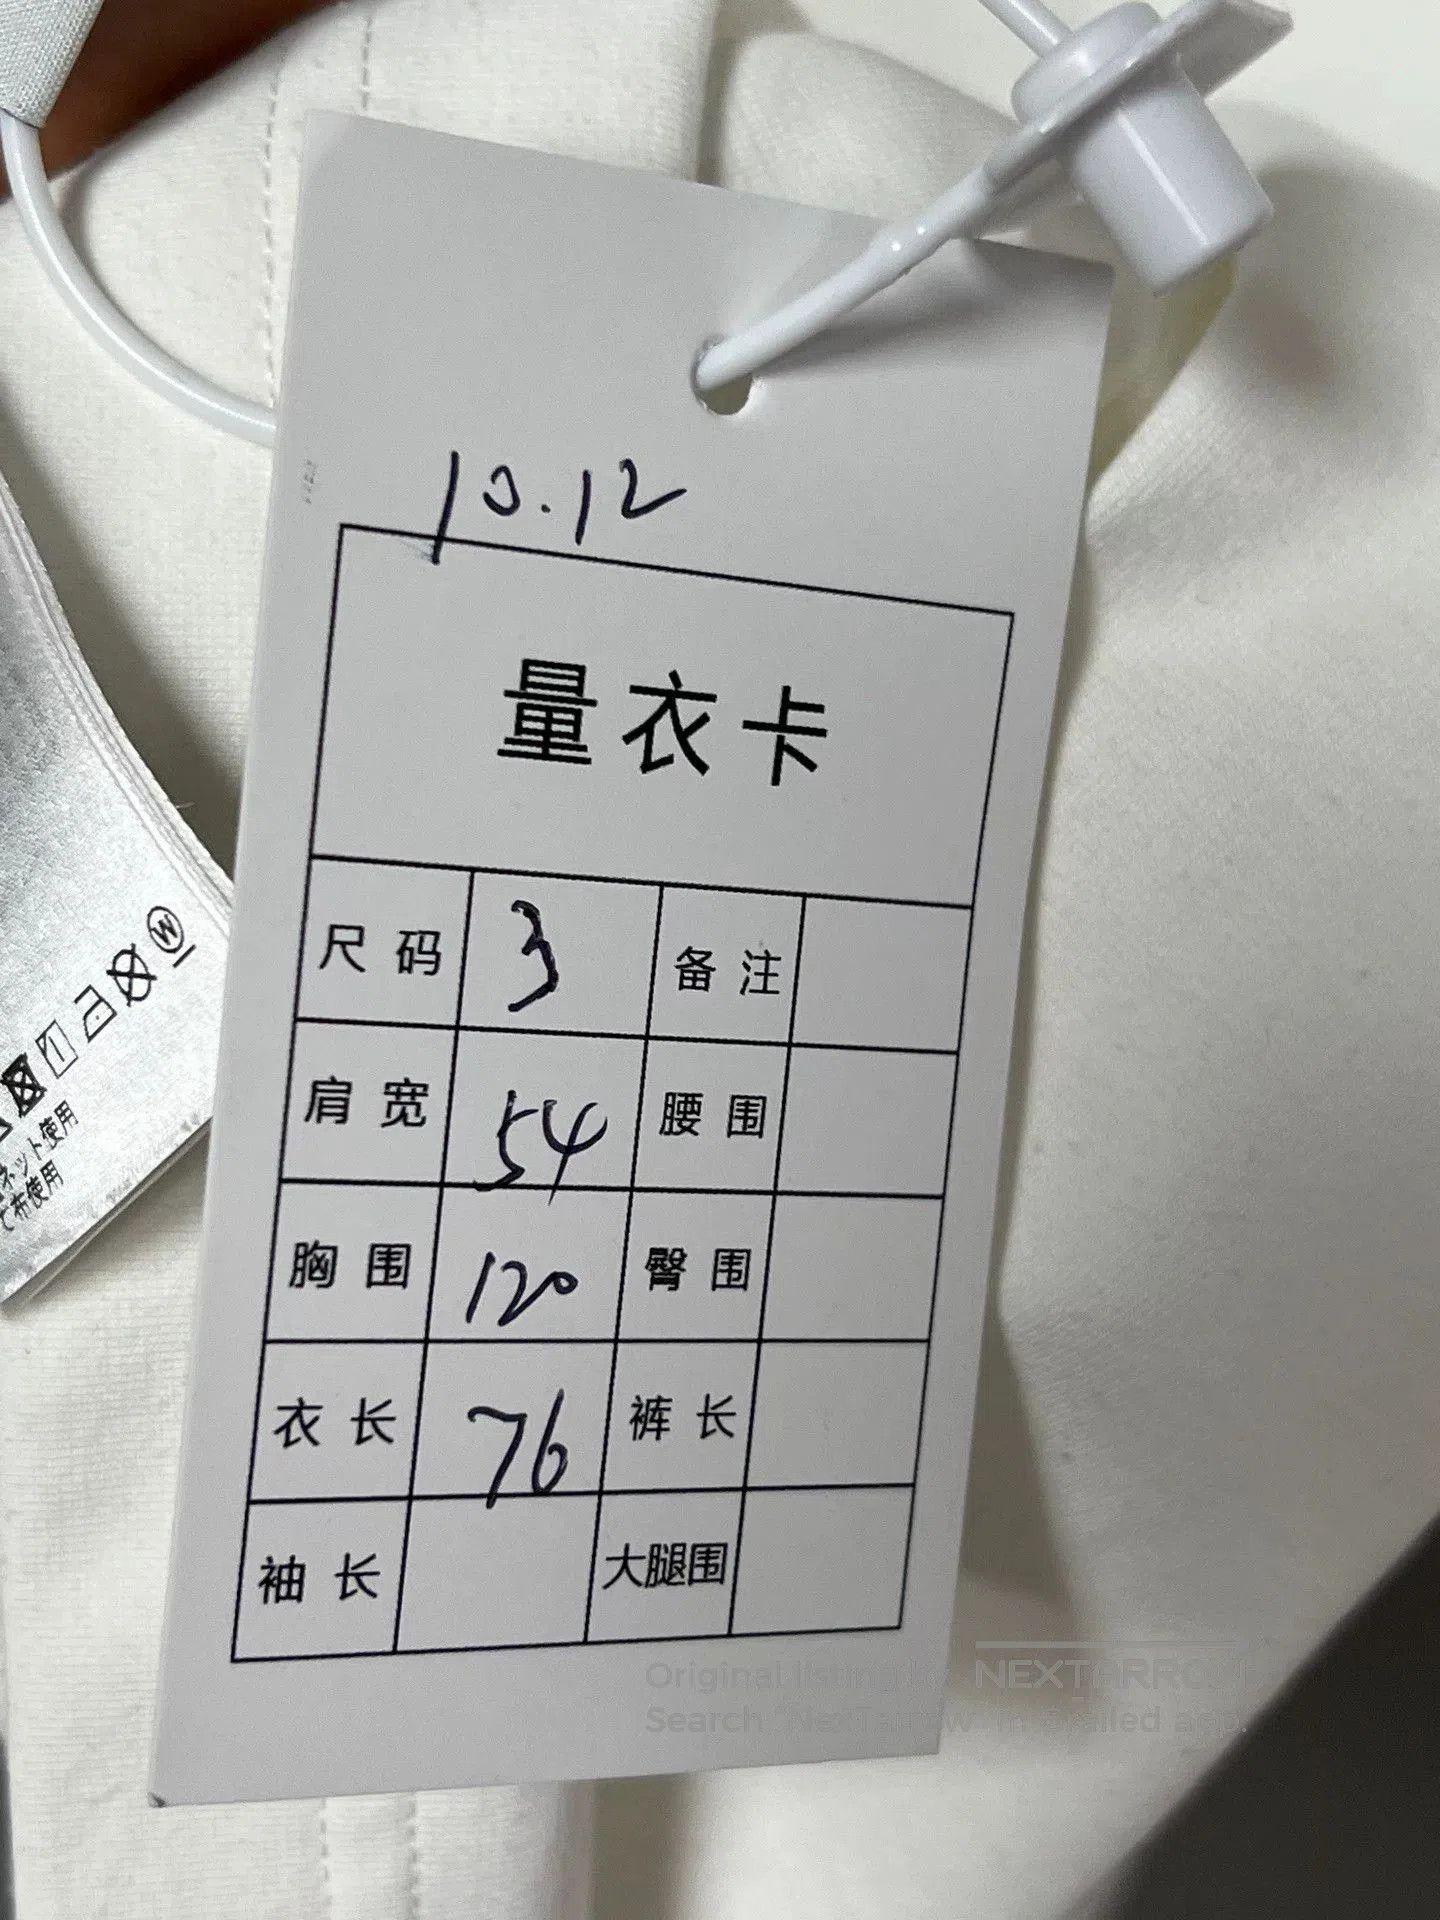 10.12
量衣卡
尺码 3 备注
肩宽 54 腰围
胸围 120 臀围
衣长 76 裤长
袖长 大腿围
W
ネット使用
て布使用
Original listing by NEXTARROW
Search "NexTarrow" in Grailed app.